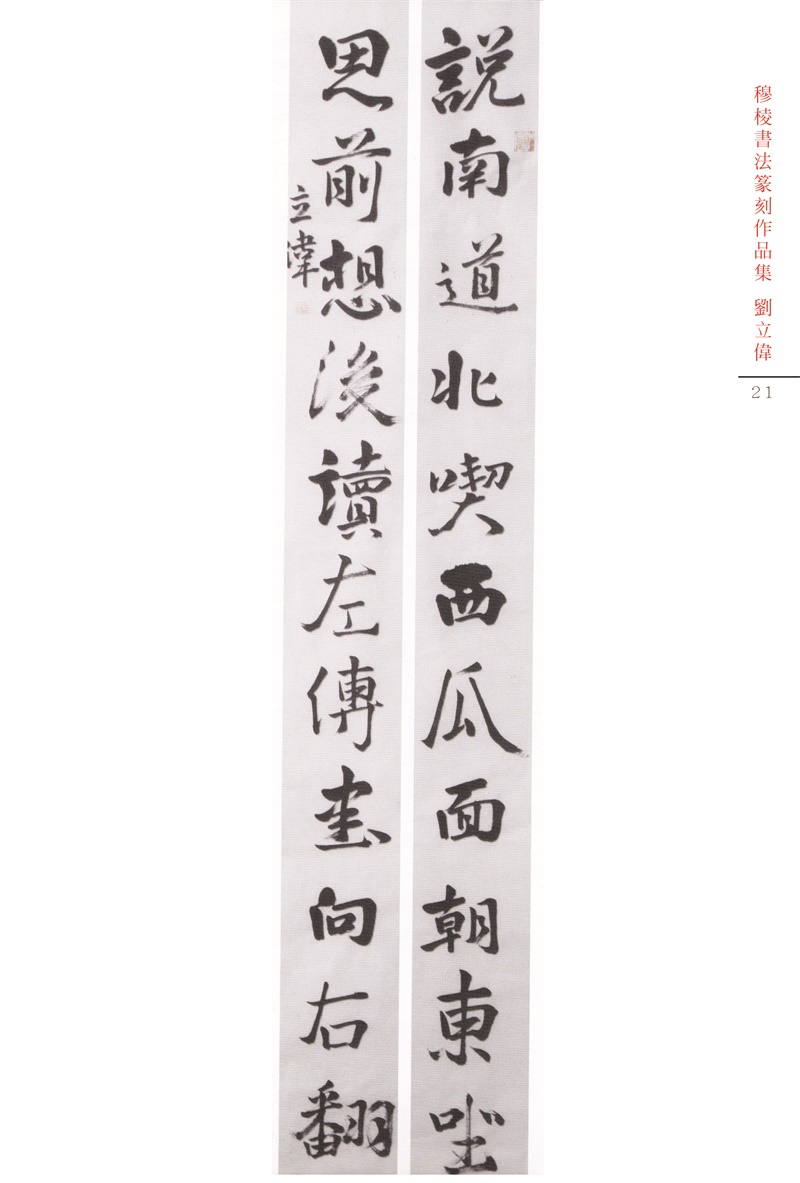 説南道北喫西瓜面朝東坐
思前想後讀左傳書向右翻
立偉
穆棱書法篆刻作品集 劉立偉
21